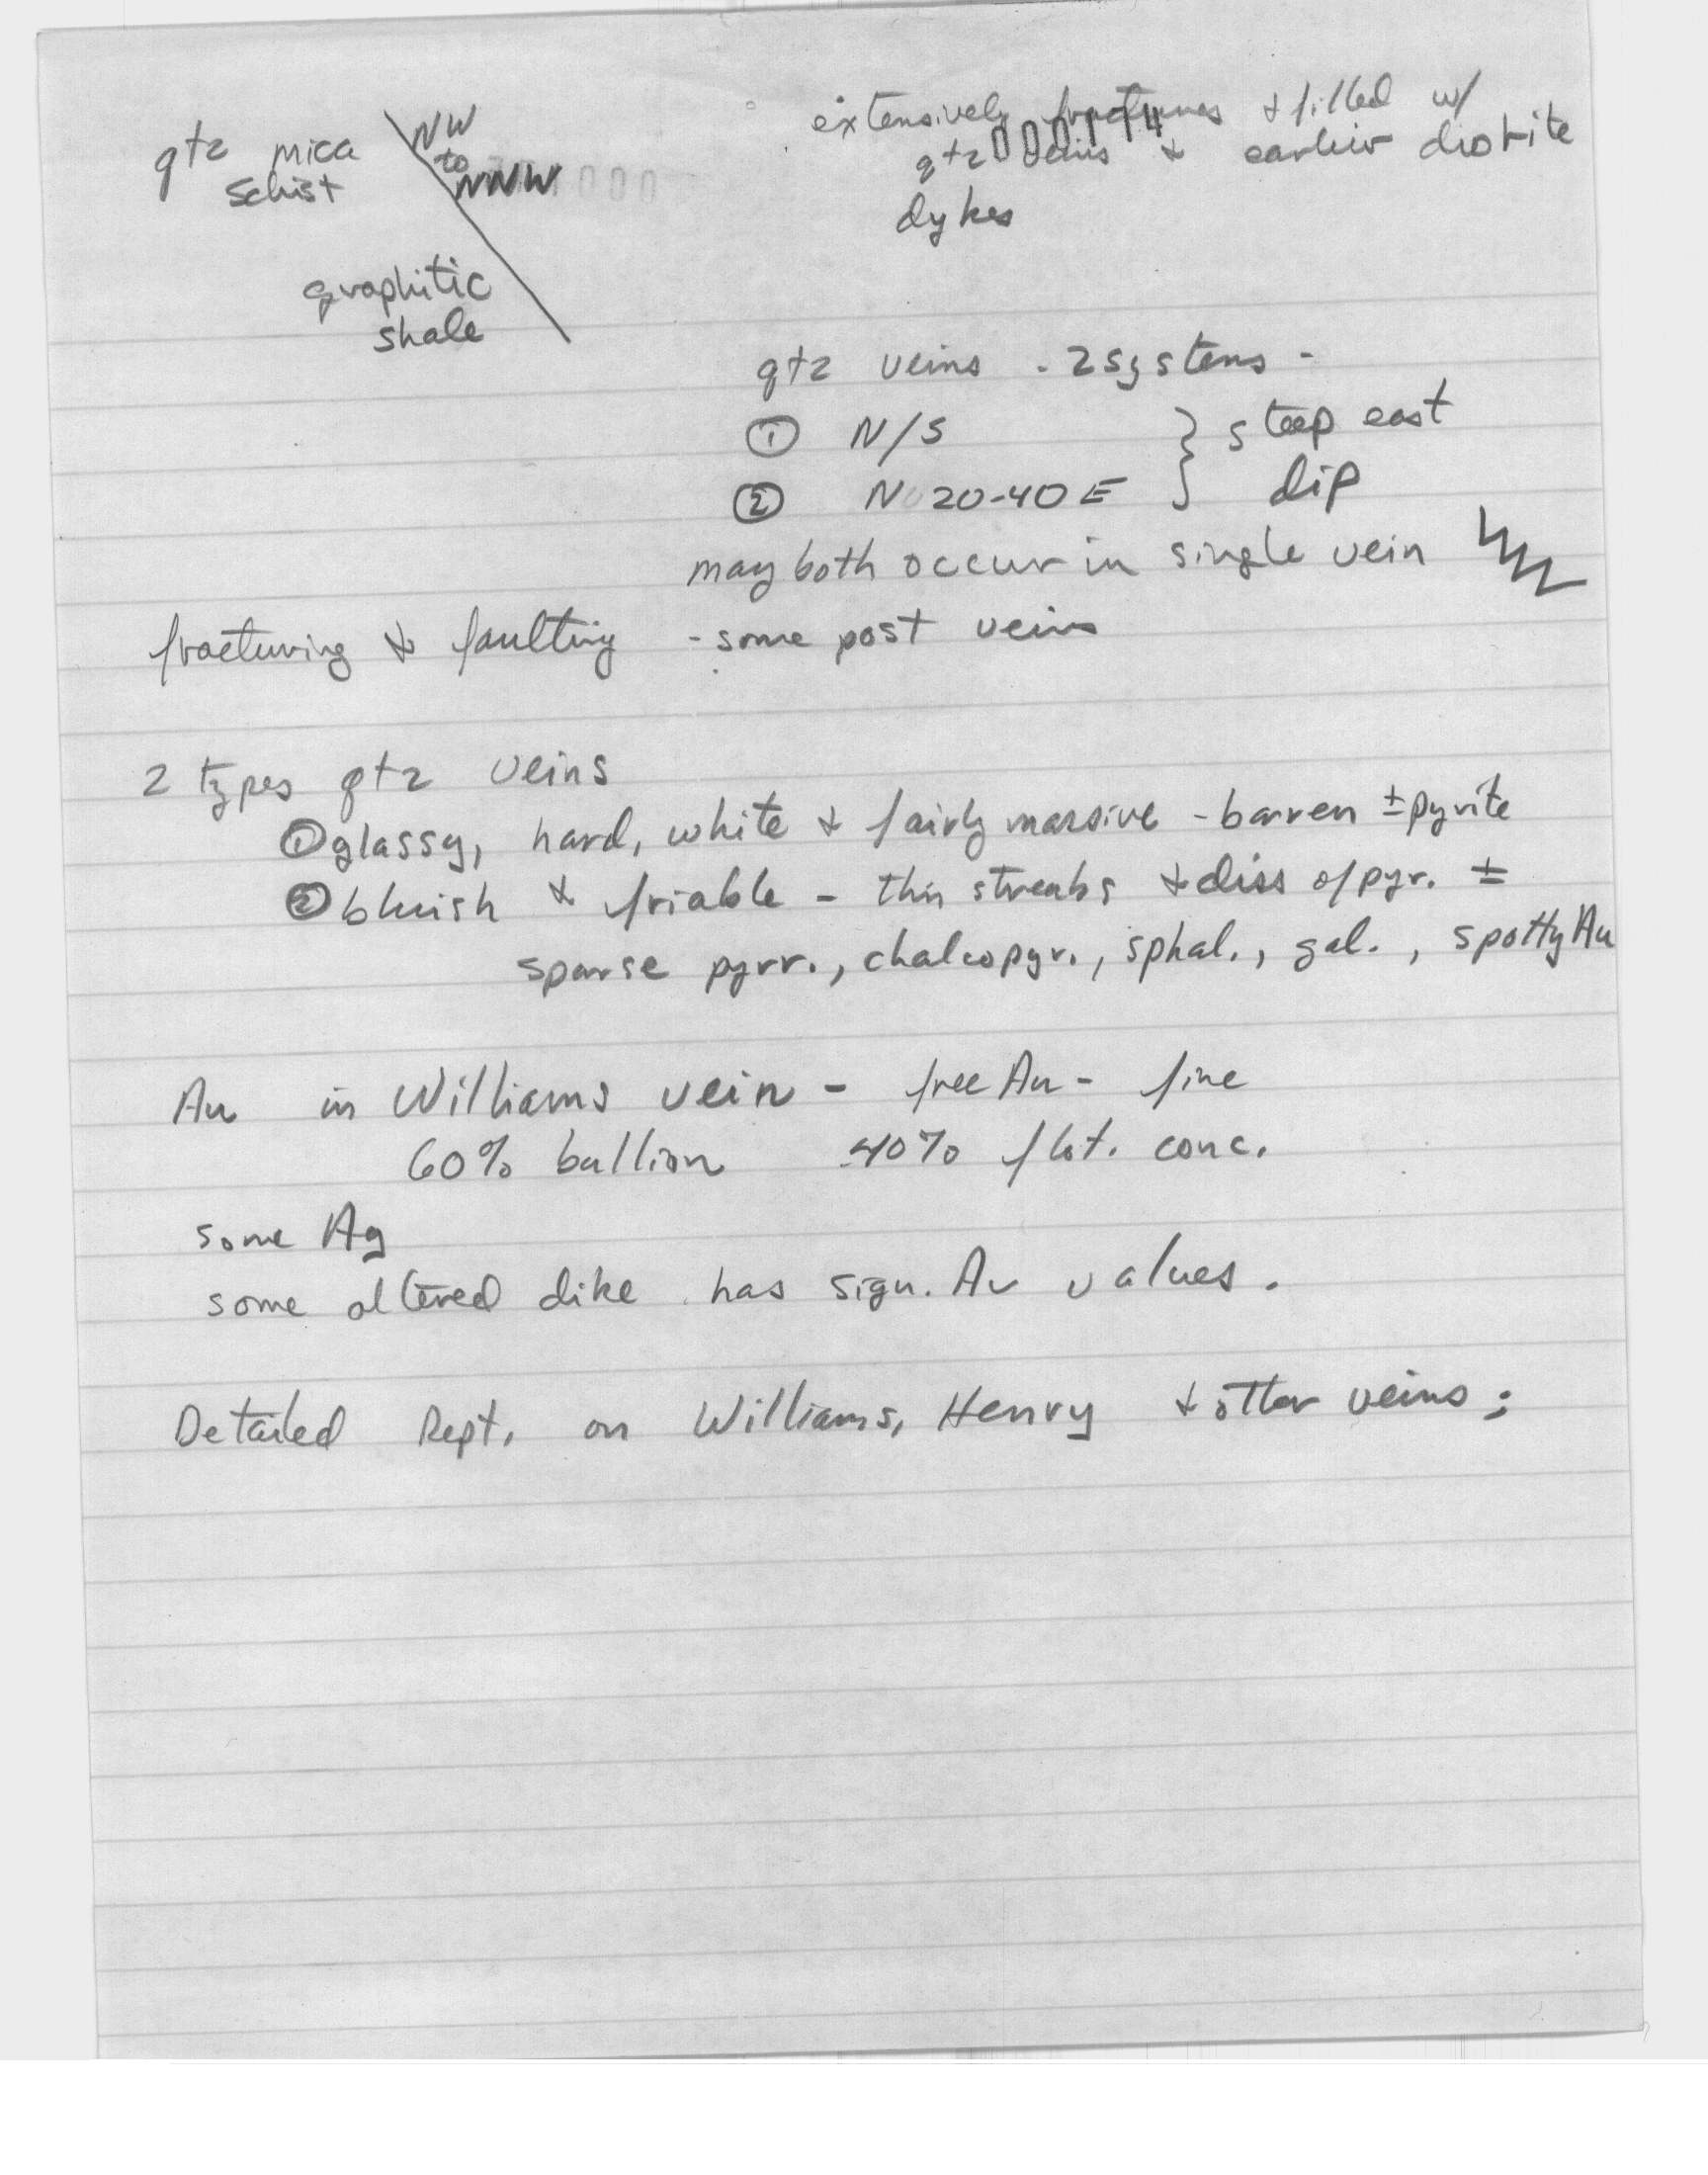 qtz mica
schist
NW
to
NNW
graphitic
shale
extensively fractures & filled w/
qtz veins & earlier diorite
dykes
000114
000
qtz veins - 2 systems -
① N/S } steep east
② N 20-40 E } dip
may both occur in single vein
fracturing & faulting - some post veins
2 types qtz veins
① glassy, hard, white & fairly massive - barren ± pyrite
② bluish & friable - thin streaks & diss of pyr. ±
sparse pyrr., chalcopyr., sphal., gal., spotty Au
Au in Williams vein - free Au - fine
60% bullion 40% flot. conc.
some Ag
some altered dike has sign. Au values.
Detailed Rept. on Williams, Henry & other veins;